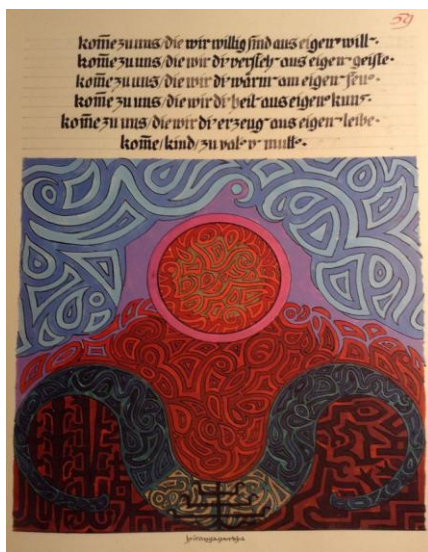 59
kom̄e zu uns/die wir willig sind aus eigen will.
kom̄e zu uns/die wir di versteh aus eigen geiste.
kom̄e zu uns/die wir di wärm am eigen feu.
kom̄e zu uns/die wir di heil aus eigen kuns.
kom̄e zu uns/die wir di erzeug aus eigen leibe.
kom̄e/kind/zu vat v mutt.
hiranyagarbha